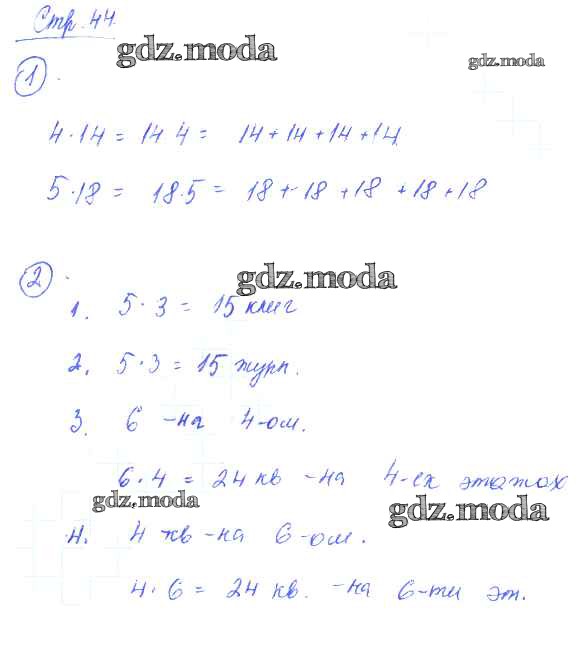 Стр. 44.
gdz.moda
gdz.moda
1.
4·14 = 14 4 = 14 + 14 + 14 + 14
5·18 = 18·5 = 18 + 18 + 18 + 18 + 18
2.
gdz.moda
1. 5·3 = 15 книг
2. 5·3 = 15 журн.
3. 6 – на 4-ом.
6·4 = 24 кв – на 4-ех этажах
gdz.moda
gdz.moda
4. 4 кв – на 6-ом.
4·6 = 24 кв. – на 6-ти эт.